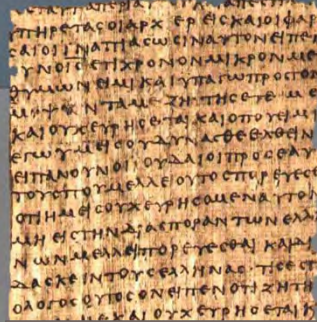 ΠΗΡΕΤΑϹΟΙΑΡΧ ΕΡΕΙϹΚΑΙΟΙΦΑΡ
ϹΑΙΟΙΙΝΑΠΙΑϹΩϹΙΝΑΥΤΟΝΕΙΠΕ
ΥΝΟΙϹΕΤΙΧΡΟΝΟΝΜΙΚΡΟΝΜΕ
ΘΥΜΩΝΕΙΜΙΚΑΙΥΠΑΓΩΠΡΟϹΤΟ
ΜΨΑΝΤΑΜΕ ΖΗΤΗϹΕΤΕ ΜΕ
ΚΑΙΟΥΧΕΥΡΗϹΕΤΑΙΚΑΙΟΠΟΥΕΙΜ
ΕΓΩΥΜΕΙϹΟΥΔΥΝΑϹΘΕΕΛΘΕΙΝ
ΕΙΠΑΝΟΥΝΟΙΙΟΥΔΑΙΟΙΠΡΟϹΕΑΥ
ΤΟΥϹΠΟΥΜΕΛΛΕΙΟΥΤΟϹΠΟΡΕΥΕϹΘ
ΟΤΙΗΜΕΙϹΟΥΧΕΥΡΗϹΟΜΕΝΑΥΤΟΝ
ΜΗΕΙϹΤΗΝΔΙΑϹΠΟΡΑΝΤΩΝΕΛΛΗ
ΝΩΝΜΕΛΛΕΙΠΟΡΕΥΕϹΘΑΙΚΑΙΔΙ
ΔΑϹΚΕΙΝΤΟΥϹΕΛΛΗΝΑϹ·ΤΙϹΕϹΤ
ΟΛΟΓΟϹΟΥΤΟϹΟΝΕΙΠΕΝΟΤΙΖΗΤΗ
ΚΑΙΟΥΧΕΥΡΗϹΕΤΑΙΚ